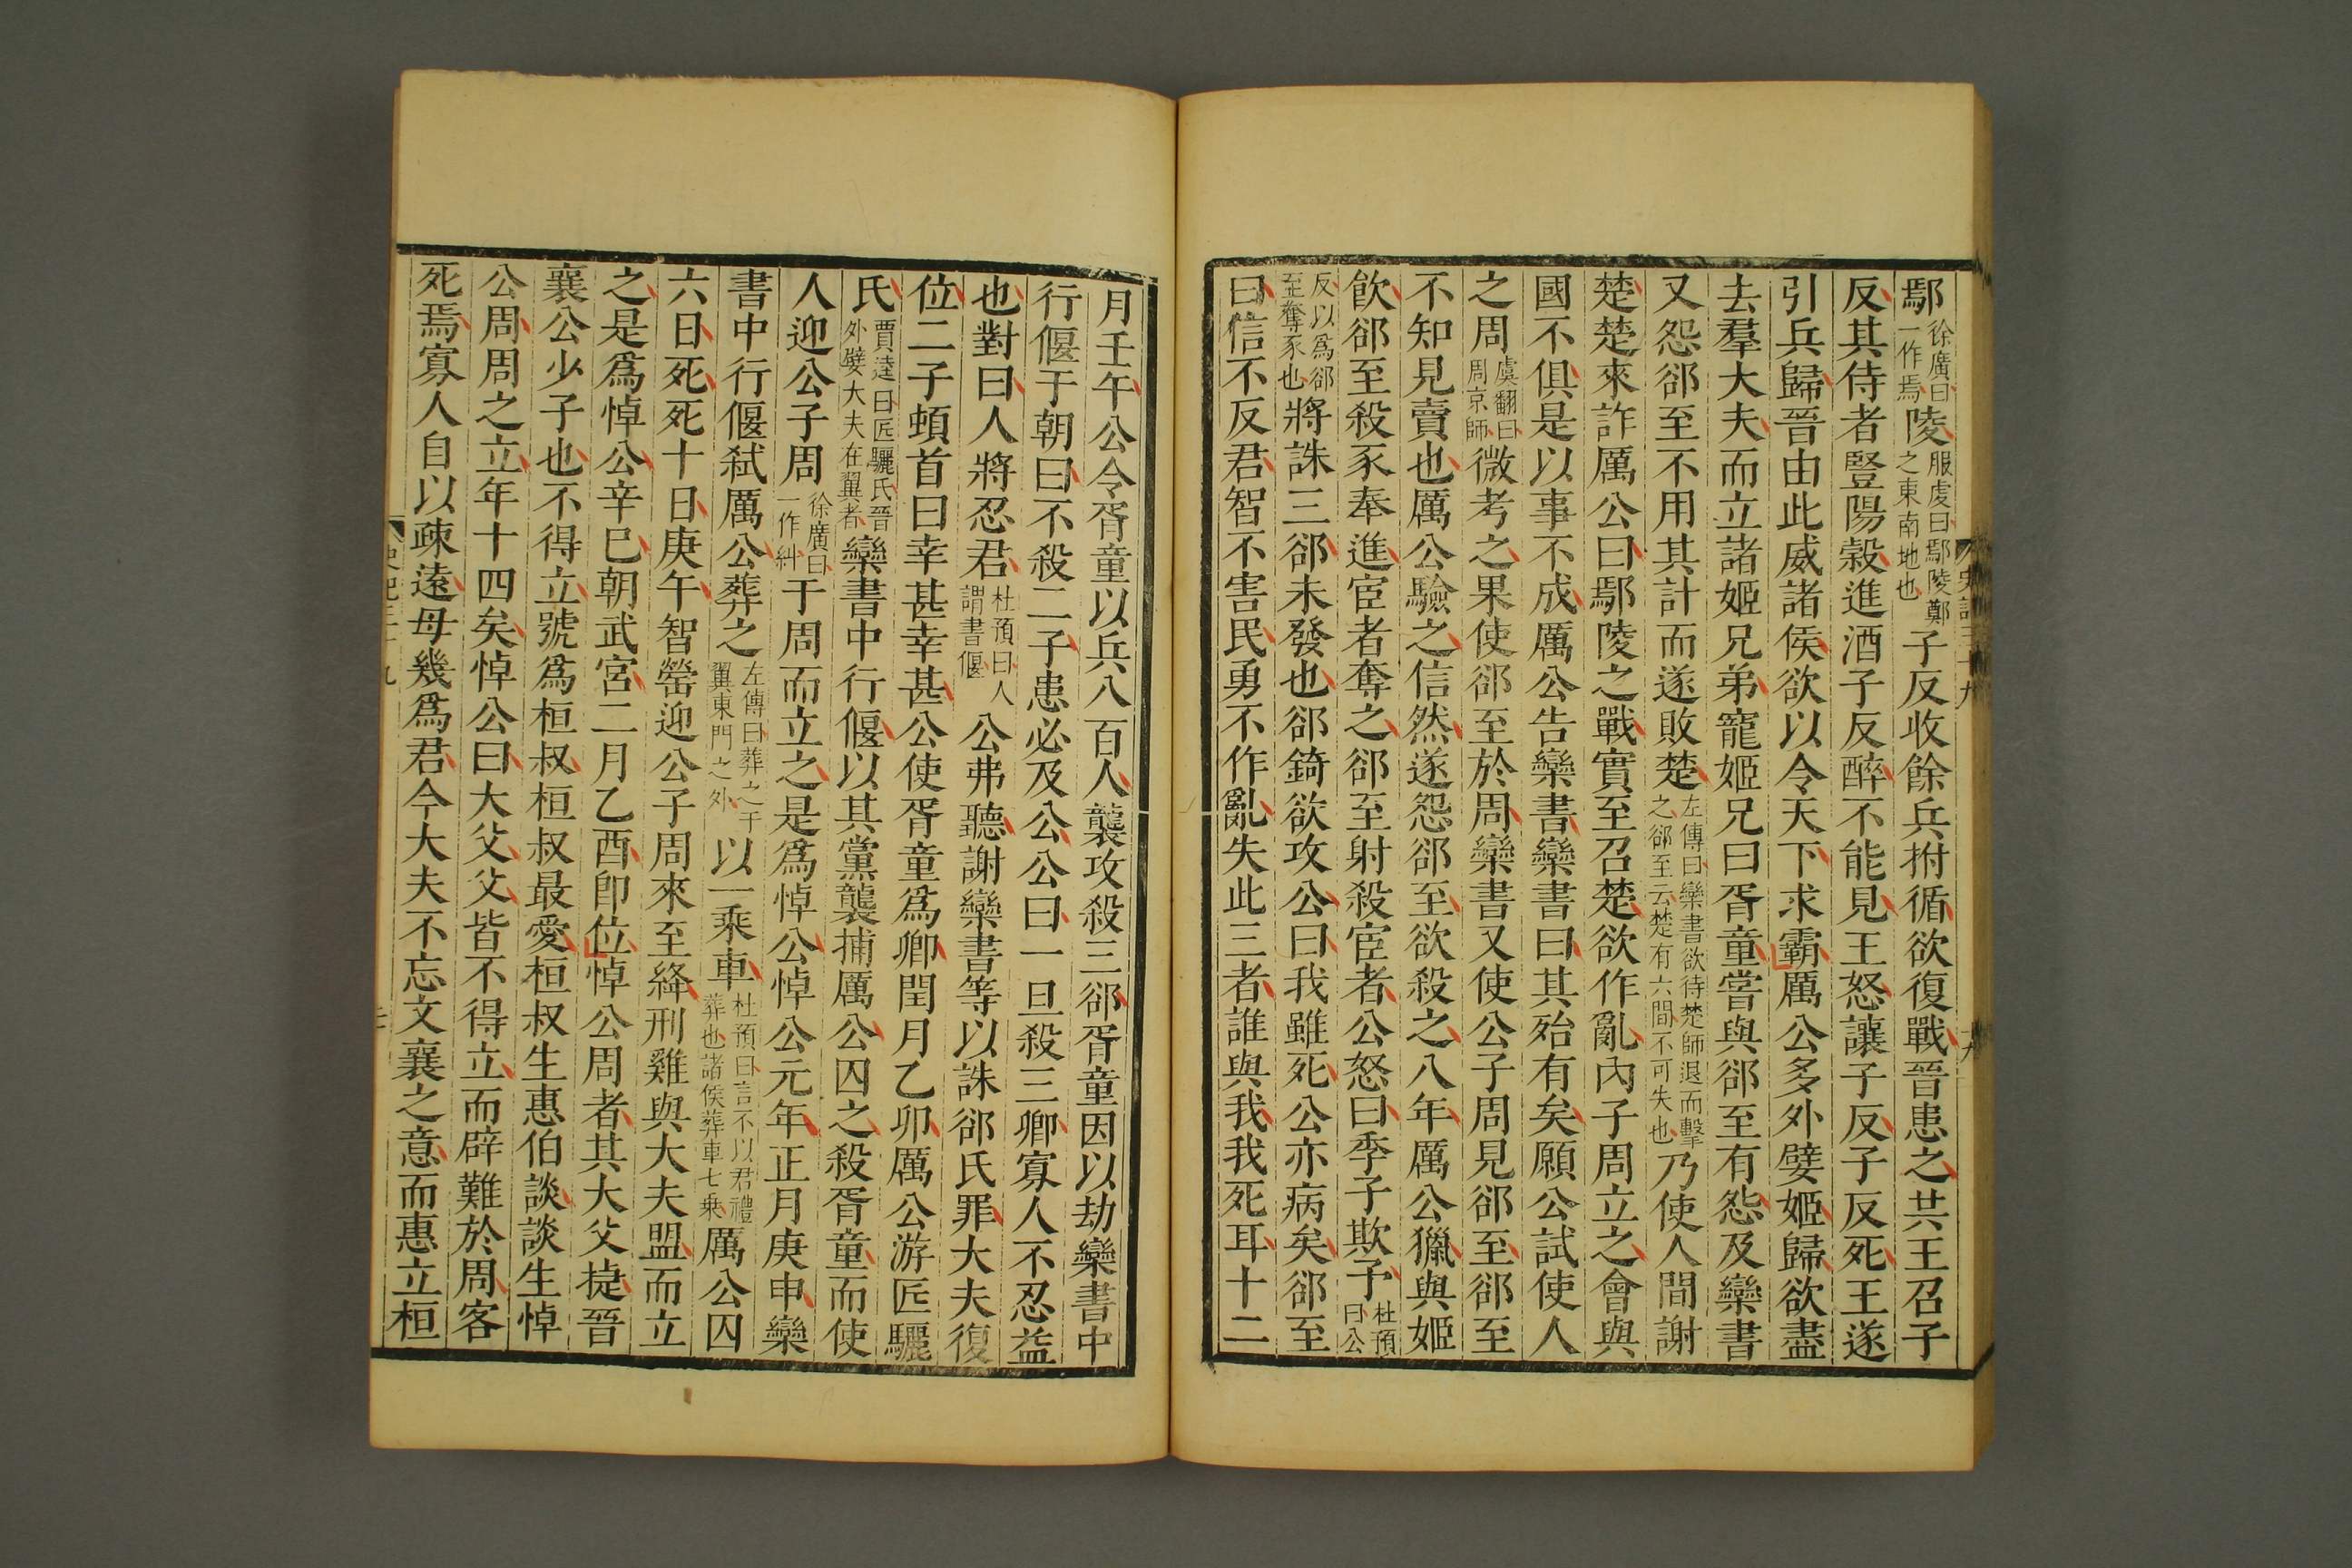 鄢徐廣曰一作焉陵服虔曰鄢陵鄭之東南地也子反收餘兵拊循欲復戰晉患之共王召子
反其侍者豎陽穀進酒子反醉不能見王怒讓子反子反死王遂
引兵歸晉由此威諸侯欲以令天下求霸厲公多外嬖姬歸欲盡
去羣大夫而立諸姬兄弟寵姬兄曰胥童嘗與郤至有怨及欒書
又怨郤至不用其計而遂敗楚左傳曰欒書欲待楚師退而擊之郤至云楚有六間不可失也乃使人間謝
楚楚來詐厲公曰鄢陵之戰實至召楚欲作亂內子周立之會與
國不俱是以事不成厲公告欒書欒書曰其殆有矣願公試使人
之周虞翻曰周京師微考之果使郤至於周欒書又使公子周見郤至郤至
不知見賣也厲公驗之信然遂怨郤至欲殺之八年厲公獵與姬
飲郤至殺豕奉進宦者奪之郤至射殺宦者公怒曰季子欺予杜預曰公
反以爲郤至奪豕也將誅三郤未發也郤錡欲攻公曰我雖死公亦病矣郤至
曰信不反君智不害民勇不作亂失此三者誰與我我死耳十二
月壬午公令胥童以兵八百人襲攻殺三郤胥童因以劫欒書中
行偃于朝曰不殺二子患必及公公曰一旦殺三卿寡人不忍益
也對曰人將忍君杜預曰人謂書偃公弗聽謝欒書等以誅郤氏罪大夫復
位二子頓首曰幸甚幸甚公使胥童爲卿閏月乙卯厲公游匠驪
氏賈逵曰匠驪氏晉外嬖大夫在翼者欒書中行偃以其黨襲捕厲公囚之殺胥童而使
人迎公子周徐廣曰一作糾于周而立之是爲悼公悼公元年正月庚申欒
書中行偃弒厲公葬之左傳曰葬之于翼東門之外以一乘車杜預曰言不以君禮葬也諸侯葬車七乘厲公囚
六日死死十日庚午智罃迎公子周來至絳刑雞與大夫盟而立
之是爲悼公辛巳朝武宮二月乙酉卽位悼公周者其大父捷晉
襄公少子也不得立號爲桓叔桓叔最愛桓叔生惠伯談談生悼
公周周之立年十四矣悼公曰大父父皆不得立而辟難於周客
死焉寡人自以疎遠毋幾爲君今大夫不忘文襄之意而惠立桓